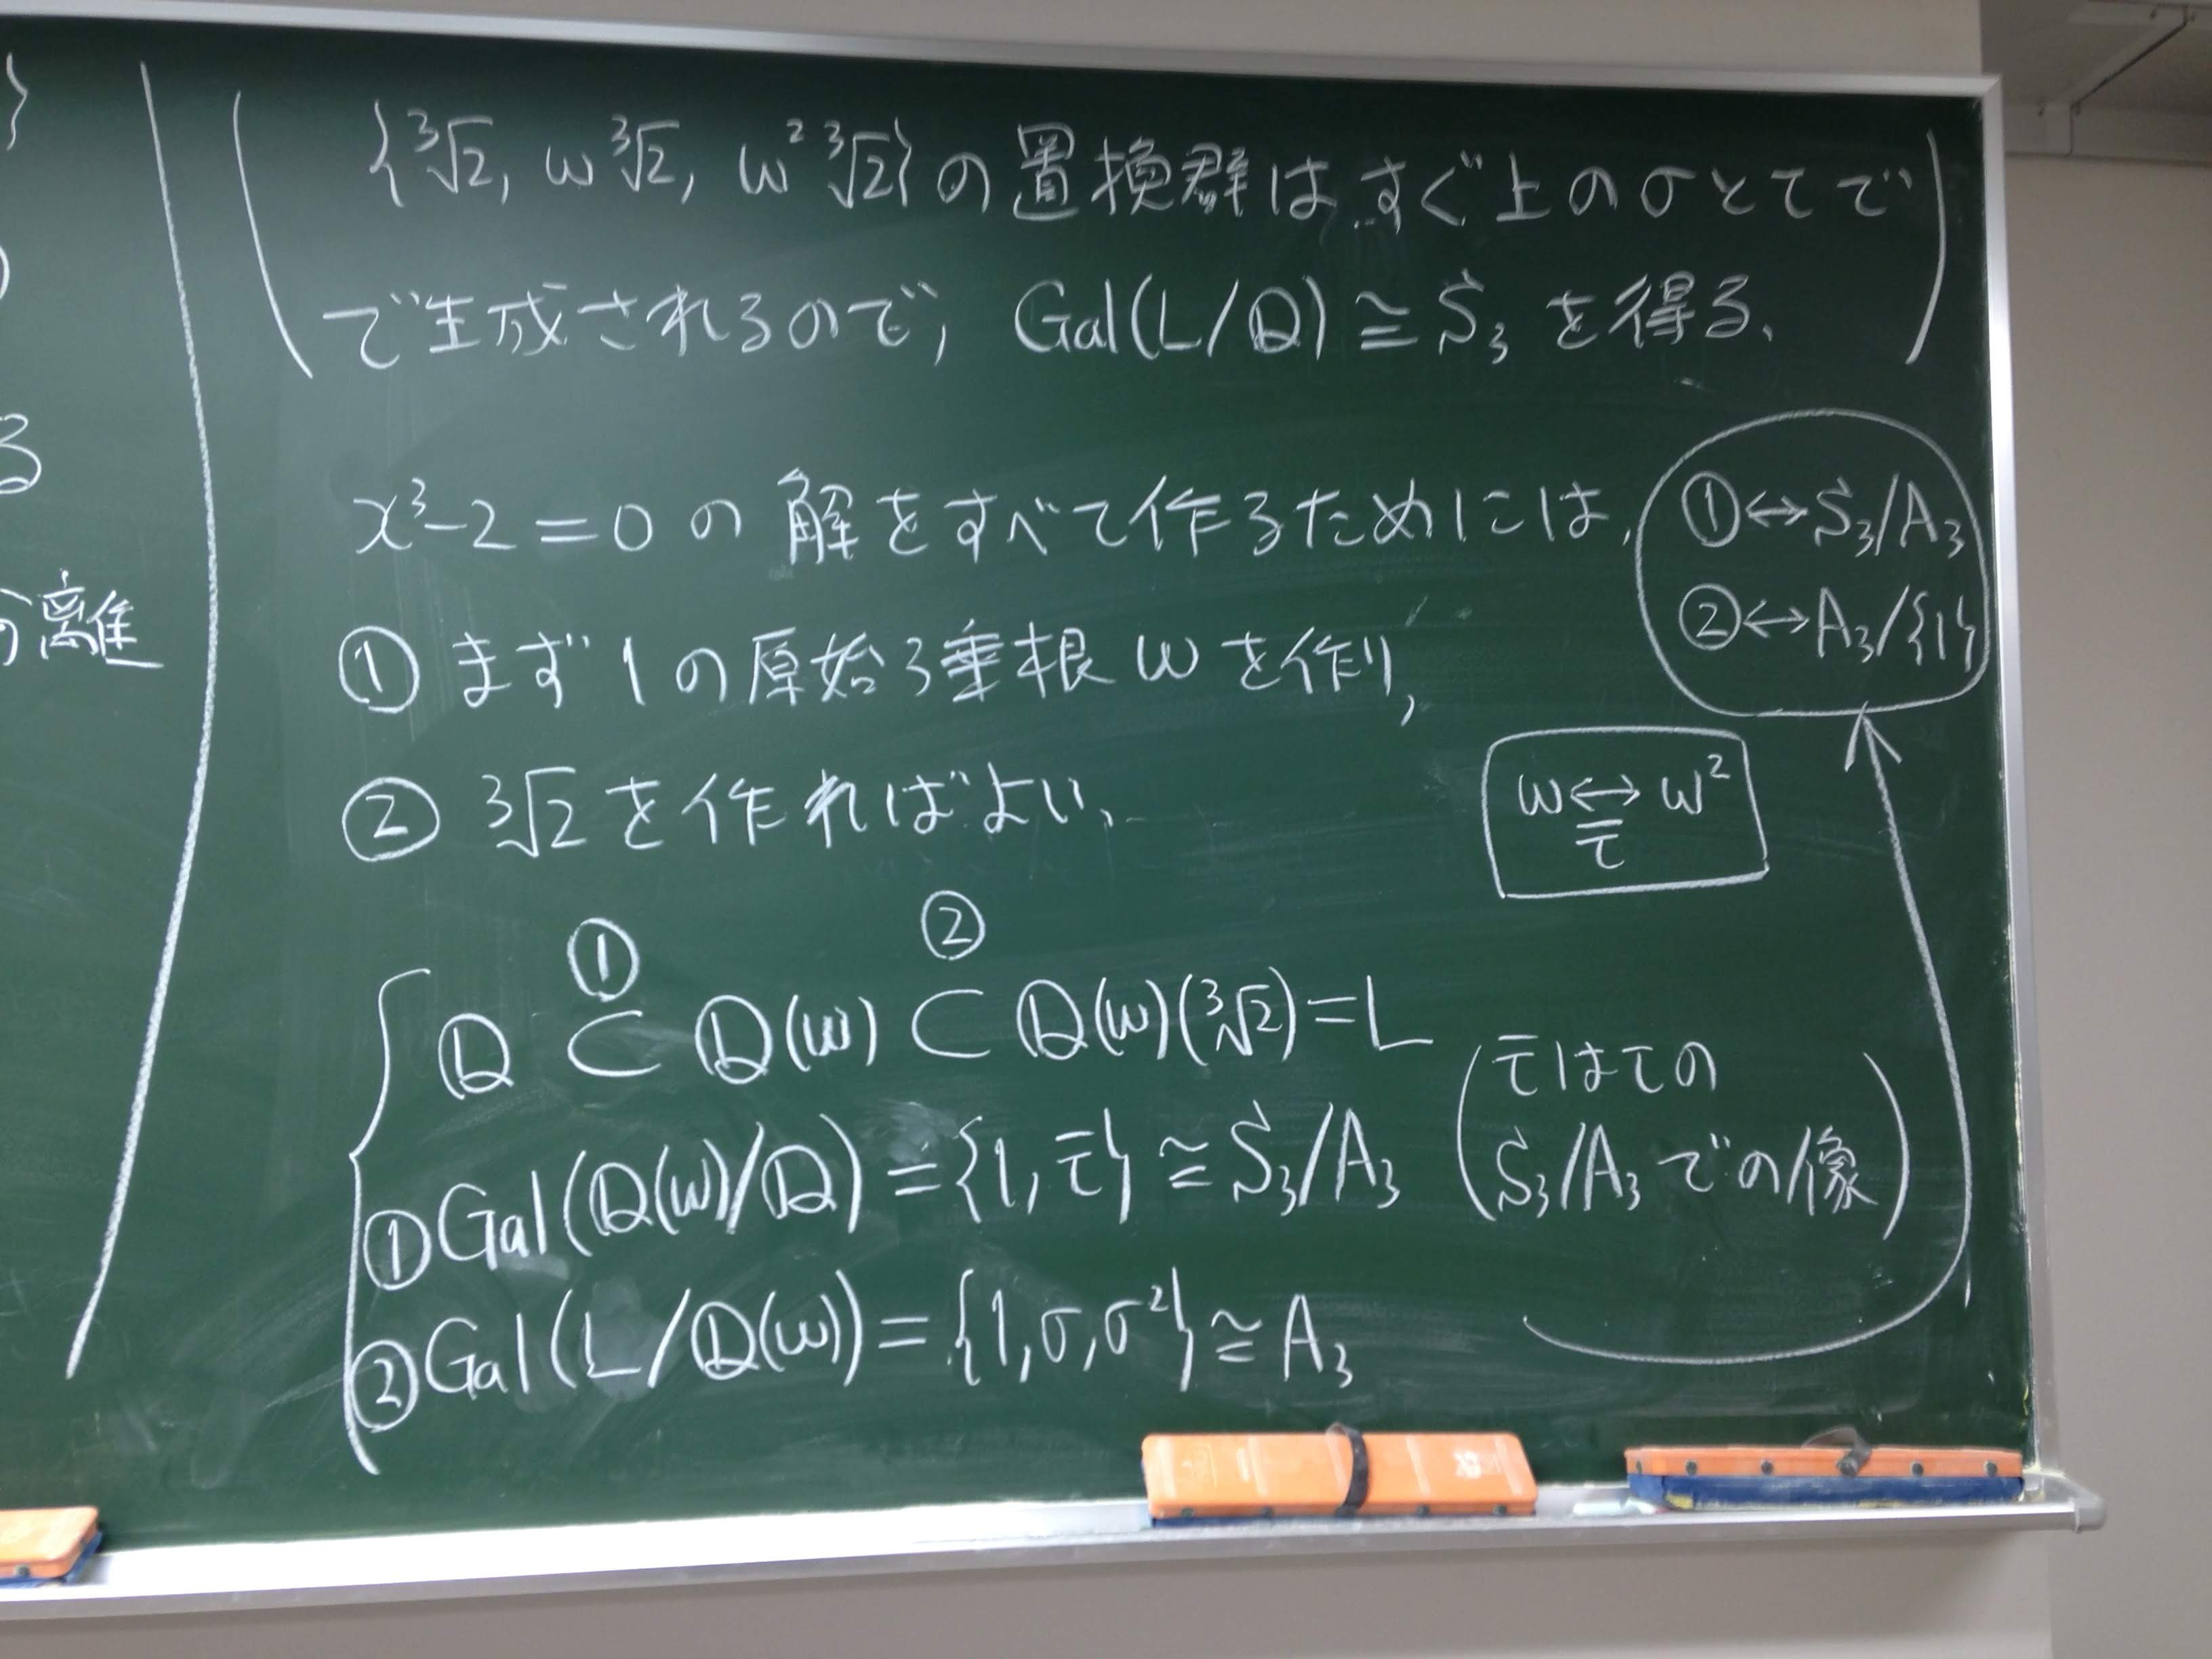 }
)
る
分離
{∛2, ω∛2, ω²∛2}の置換群はすぐ上のσとτで
で生成されるので, Gal(L/Q)≅S₃を得る、
x³-2=0の解をすべて作るためには,
①まず1の原始3乗根ωを作り,
②∛2を作ればよい、
①↔S₃/A₃
②↔A₃/{1}
ω↔ω²
τ̄
① ②
Q⊂Q(ω)⊂Q(ω)(∛2)=L
①Gal(Q(ω)/Q)={1,τ̄}≅S₃/A₃
②Gal(L/Q(ω))={1,σ,σ²}≅A₃
(τ̄はτの
S₃/A₃での像)